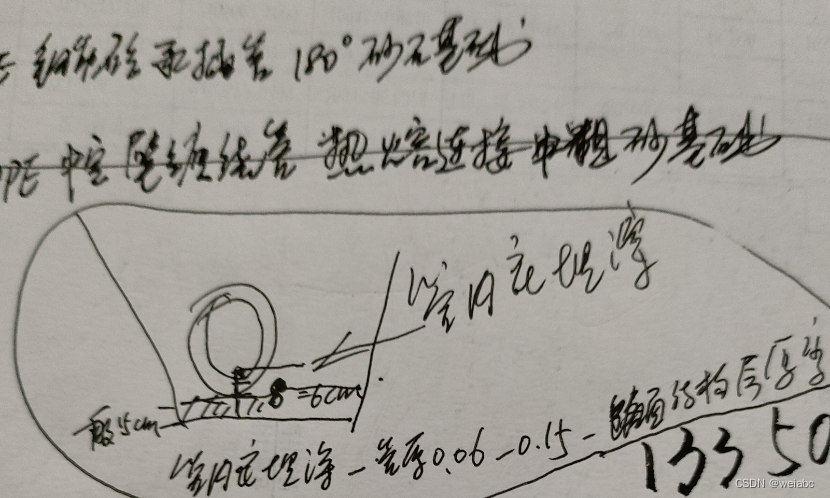 钢筋砼承插管 180°砂石基础
PE 中空壁缠绕管 热熔连接 中粗砂基础
管内底埋深
=6cm
一般15cm
管内底埋深-管厚0.06-0.15-路面结构层厚度
13350
CSDN @weiabc